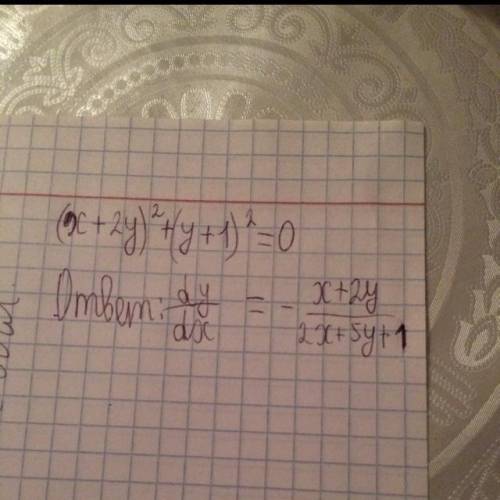 (x+2y)²+(y+1)²=0
Ответ: dy/dx = - x+2y/2x+5y+1